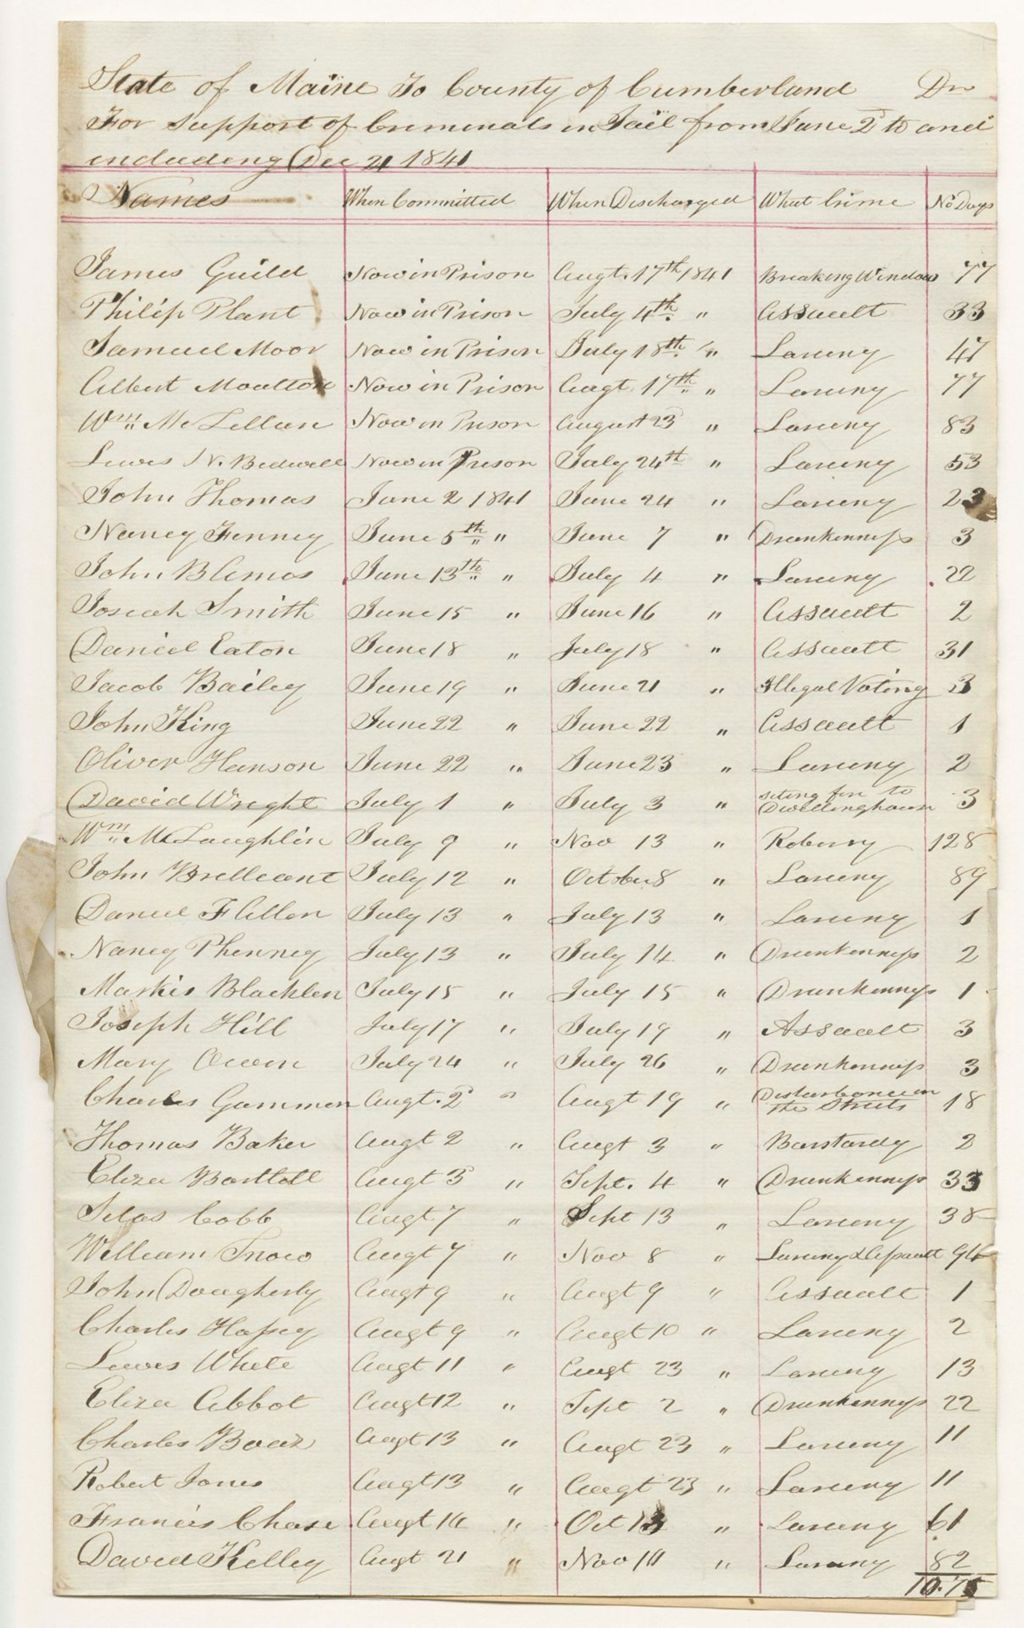 State of Maine To County of Cumberland Dr
For Support of Criminals in Jail from June 2d to and
including Dec 21 1841
Names When Committed When Discharged What Crime No Days
James Guild Now in Prison Augt. 17th 1841 Breaking Window 77
Philip Plant Now in Prison July 4th " Assault 33
Samuel Moor Now in Prison July 18th " Larceny 47
Albert Moulton Now in Prison Augt 17th " Larceny 77
Wm McLellan Now in Prison August 23 " Larceny 83
Lewis N. Bedwell Now in Prison July 24th " Larceny 53
John Thomas June 2 1841 June 24 " Larceny 23
Nancy Finney June 5th " June 7 " Drunkenness 3
John B Lemos June 13th " July 4 " Larceny 22
Josiah Smith June 15 " June 16 " Assault 2
Daniel Eaton June 18 " July 18 " Assault 31
Jacob Bailey June 19 " June 21 " Illegal Voting 3
John King June 22 " June 22 " Assault 1
Oliver Hanson June 22 " June 23 " Larceny 2
David Wright July 1 " July 3 " seting fire to Dwellinghouse 3
Wm McLaughlin July 9 " Nov 13 " Robery 128
John Brelleant July 12 " October 8 " Larceny 89
Daniel F Allen July 13 " July 13 " Larceny 1
Nancy Phenney July 13 " July 14 " Drunkenness 2
Markis Blacklen July 15 " July 15 " Drunkenness 1
Joseph Hill July 17 " July 19 " Assault 3
Mary Owen July 24 " July 26 " Drunkenness 3
Charles Gammon Augt. 2d " Augt 19 " Disturbance in the Streets 18
Thomas Baker Augt 2 " Augt 3 " Barstardy 2
Eliza Bartlett Augt 3 " Sept. 4 " Drunkenness 33
Silas Cobb Augt 7 " Sept 13 " Larceny 38
William Snow Augt 7 " Nov 8 " Larceny & Assault 94
John Dougherly Augt 9 " Augt 9 " Assault 1
Charles Hassey Augt 9 " Augt 10 " Larceny 2
Lewis White Augt 11 " Augt 23 " Larceny 13
Eliza Abbot Augt 12 " Sept 2 " Drunkenness 22
Charles Augt 13 " Augt 23 " Larceny 11
Robert Jones Augt 13 " Augt 23 " Larceny 11
Francis Chase Augt 14 " Oct 13 " Larceny 61
David Kelley Augt 21 " Nov 10 " Larceny 82
10.75